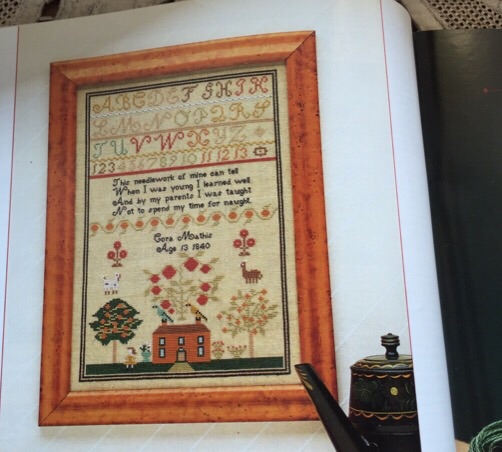 ABCDEFGHIK
LMNOPQRS
TUVWXYZ
12345678910 11 12 13
This needlework of mine can tell
When I was young I learned well
And by my parents I was taught
Not to spend my time for naught.
Cora Mathis
Age 13 1840